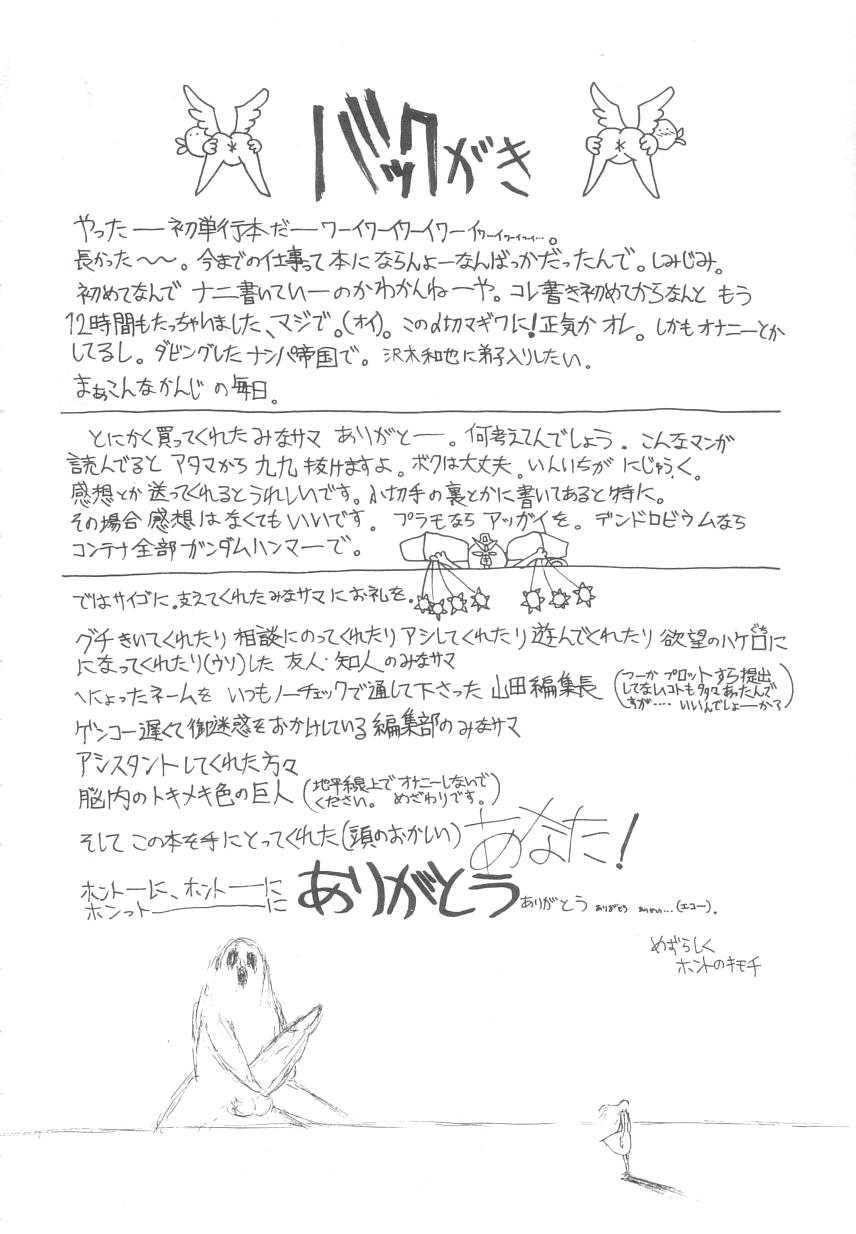 バックがき
やったー初単行本だーワーイワーイワーイワーイワーイワーイワーイ…。
長かった〜〜。今までの仕事って本にならんよーなんばっかだったんで。しみじみ。
初めてなんで ナニ書いていーのかわかんねーや。コレ書き初めてからなんと もう
12時間もたっちゃいました、マジで。(オイ)。この〆切マギワに!正気か オレ。しかもオナニーとか
してるし。ダビングしたナンパ帝国で。沢木和也に弟子入りしたい。
まぁこんなかんじ の毎日。
とにかく買ってくれた みなサマ ありがとー。何考えてんでしょう。こんなマンガ
読んでると アタマから 九九 抜けますよ。ボクは大丈夫。いんいちが にじゅうく。
感想とか 送ってくれるとうれしいです。小切手の裏とかに書いてあると特に。
その場合 感想は なくても いいです。プラモなら アッガイを。デンドロビウムなら
コンテナ全部 ガンダムハンマーで。
ではサイゴに。支えてくれた みなサマに お礼を。
グチきいてくれたり 相談にのってくれたり アシしてくれたり 遊んでくれたり 欲望のハケ口に
ぐち
になってくれたり(ウソ)した 友人・知人のみなサマ
へにょったネームを いつもノーチェックで通して下さった 山田編集長
(つーか プロットすら提出
してないコトも多々あったんで
すが…. いいんでしょーか?)
ゲンコー遅くて御迷惑をおかけしている 編集部のみなサマ
アシスタントしてくれた方々
脳内のトキメキ色の巨人
(地平線上で オナニーしないで
ください。 めざわりです。)
そして この本を手にとってくれた(頭のおかしい) あなた!
ホントーに、ホントーに
ホンットーに ありがとう ありがとう ありがとう ありがとう…(エコー)。
めずらしく
ホントのキモチ